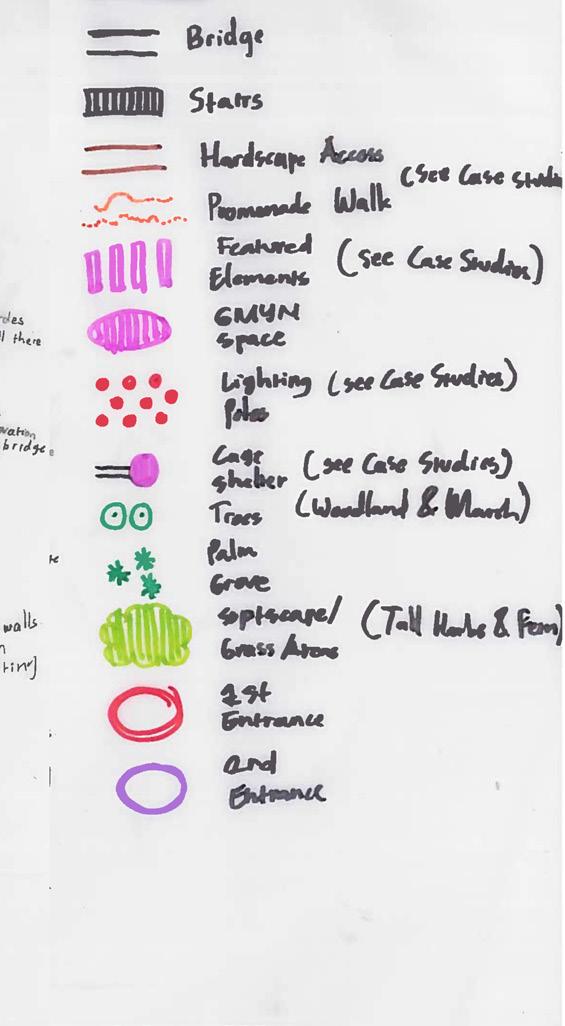 Bridge
Stairs
Hardscape Access
(See Case Studie
Promenade Walk
Featured
Elements (see Case Studies)
GMYN
Space
Lighting (see Case Studies)
Poles
Cage
shelter (see Case Studies)
Trees (Woodland & Marsh)
Palm
Grove
softscape/ (Tall Herbs & Fern)
Grass Areas
1st
Entrance
2nd
Entrance
des
ll there
vation
bridge
walls
n
ting]